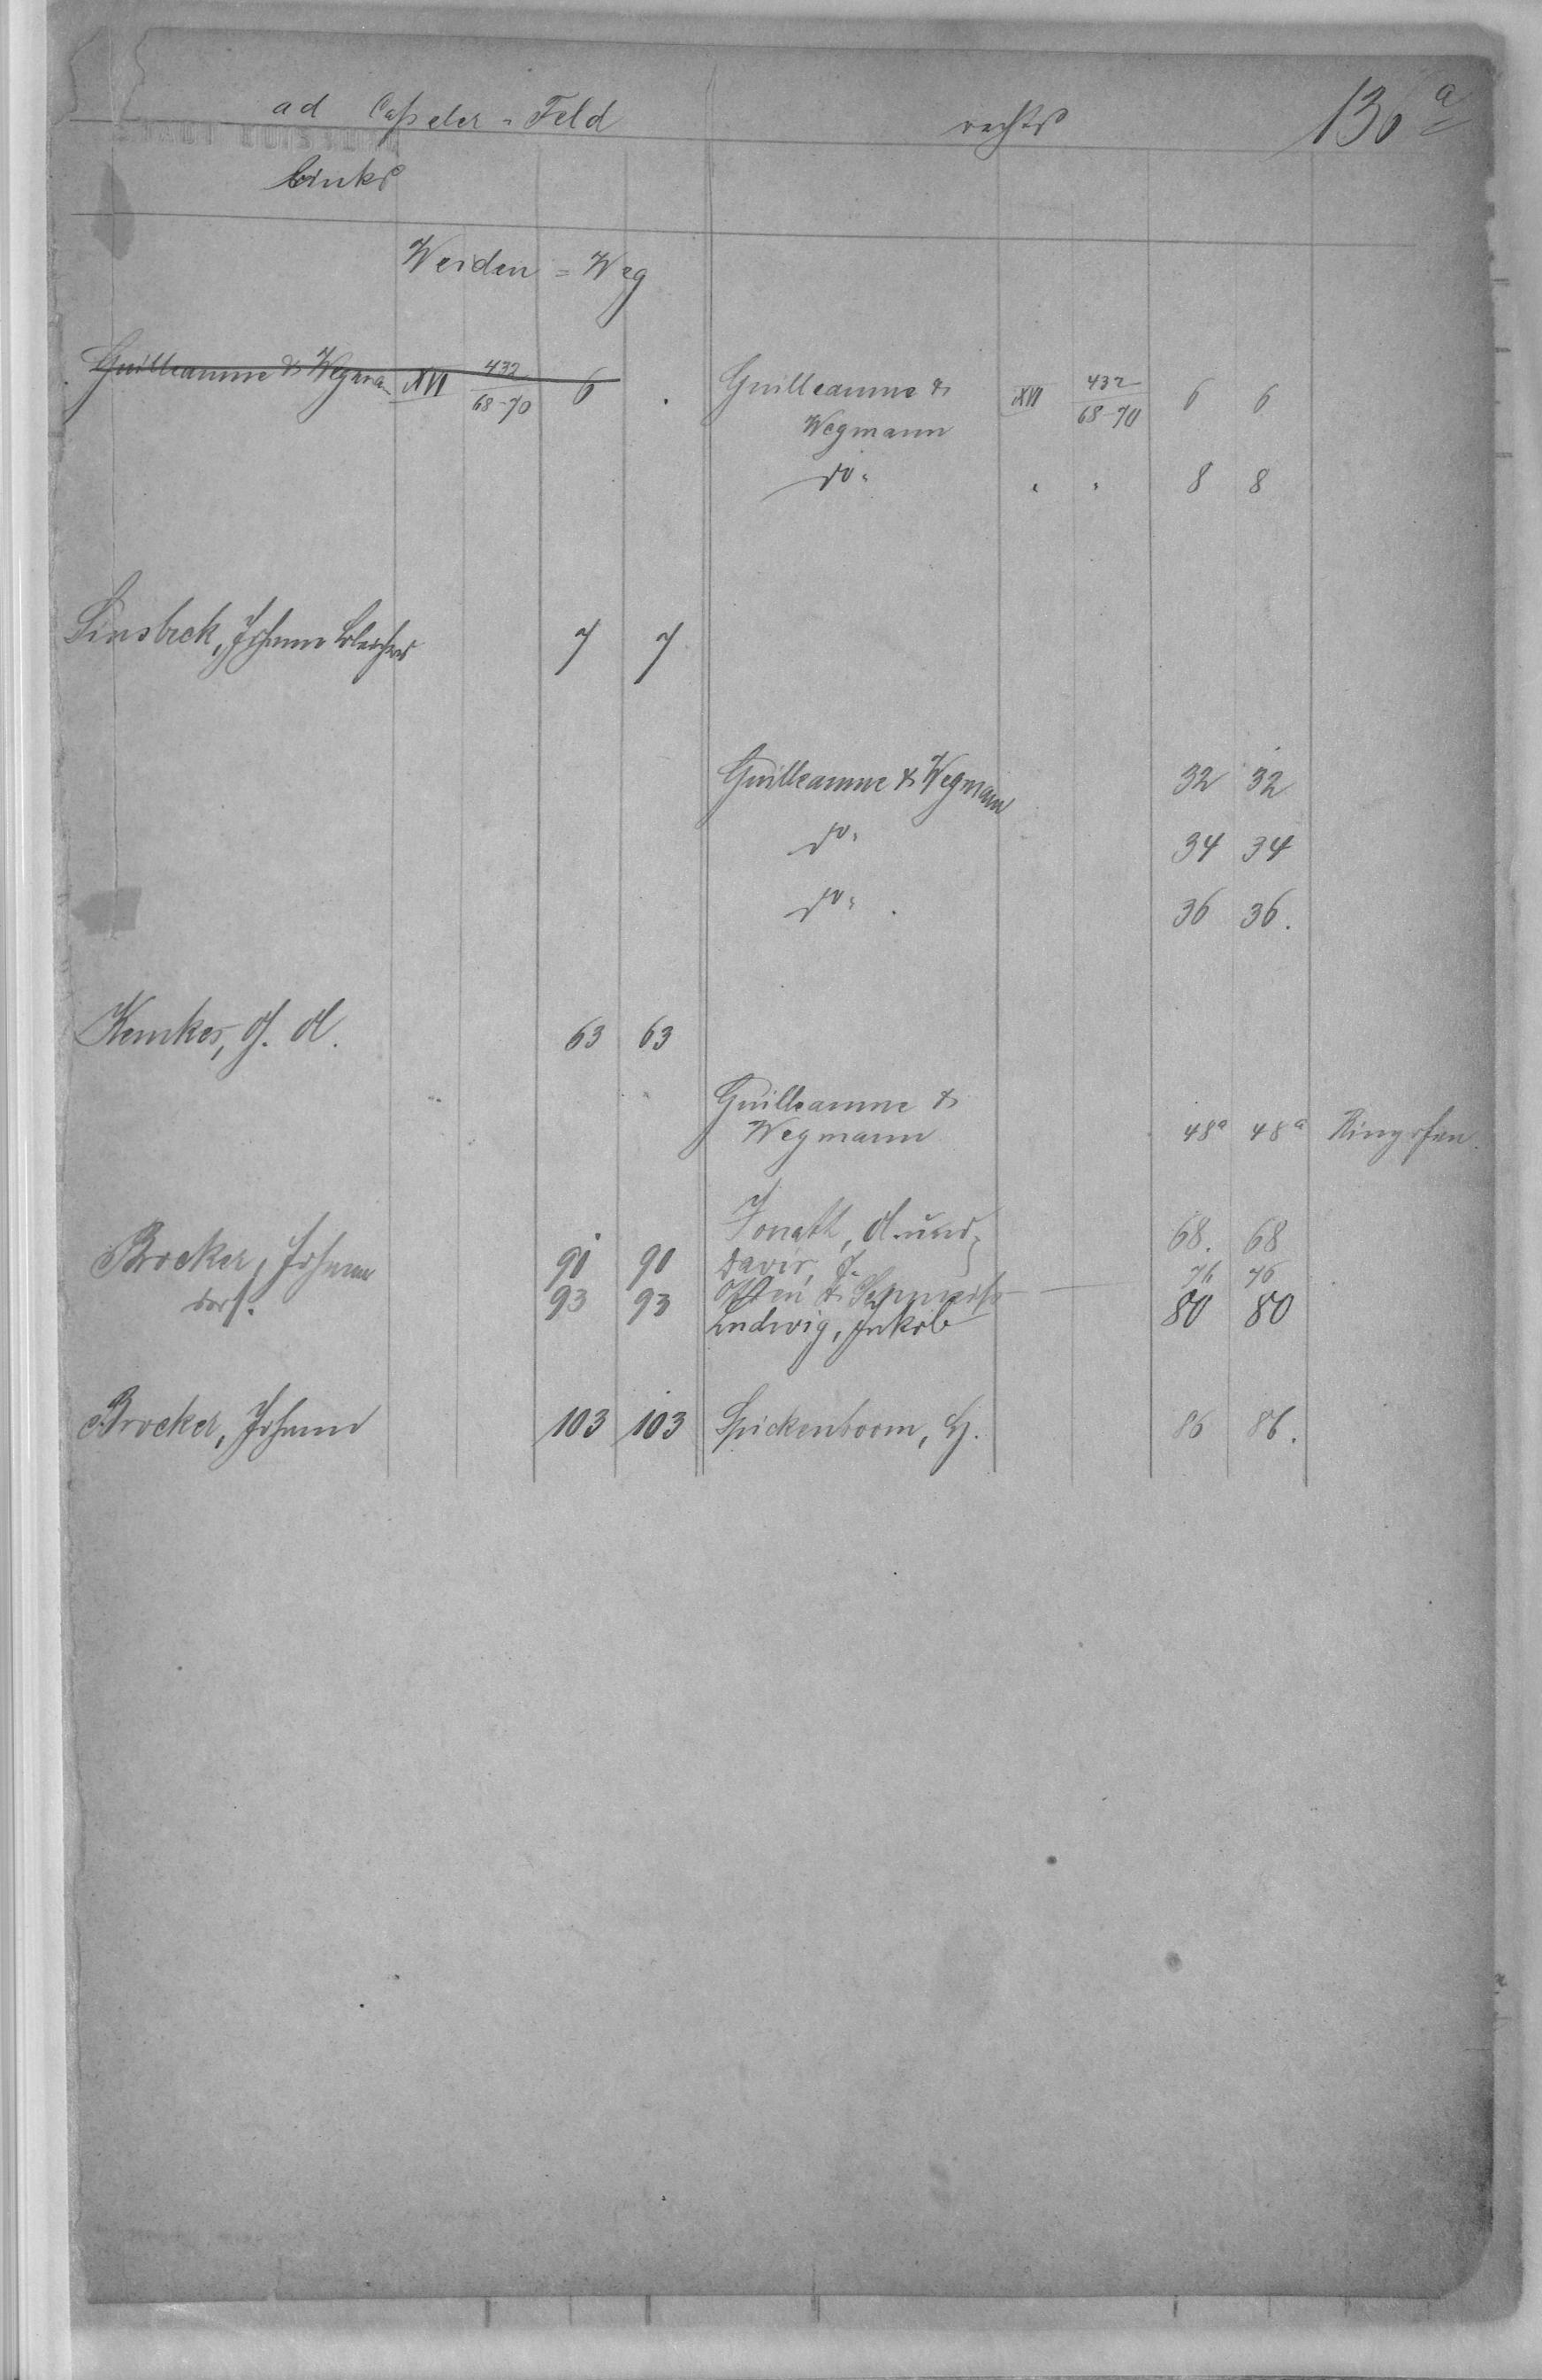 ad Casseler-Feld
rechts
136 a
links
Weiden=Weg
Guilleaume & Wegman XVI 432/68-70 6
Guilleaume & XVI 432/68-70 6 6
Wegmann
do. " " 8 8
Sinsbeck, Johann 7 7
Guilleaume & Wegmann 32 32
do. 34 34
do. 36 36.
Kemkes, 63 63
Guilleaume &
Wegmann 48a 48a Ringofen
Brocker, Johann 90 90
ders. 93 93
68. 68
76 76
Ludwig, Jakob 80 80
Brocker, Johann 103 103
Spickenboom, H. 86 86.